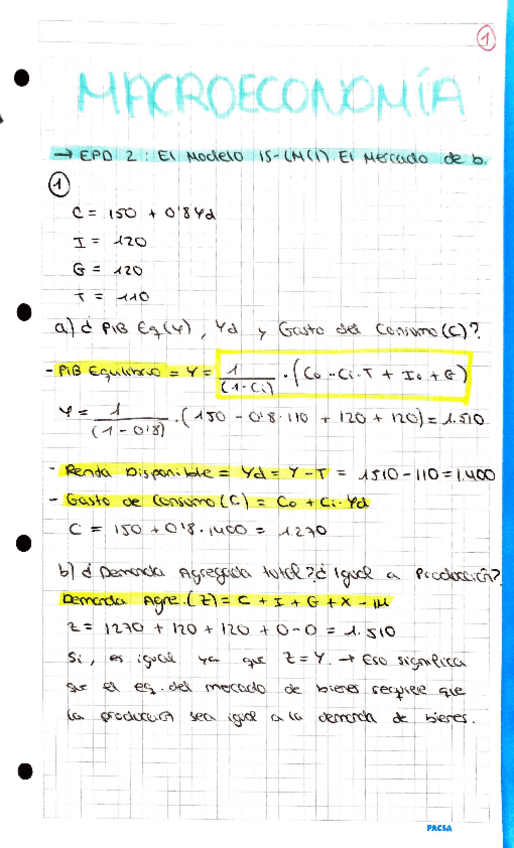 1
MACROECONOMÍA
→ EPD 2: El Modelo IS-LM(I). El Mercado de b.
1
C = 150 + 0'8Yd
I = 120
G = 120
T = 110
a) ¿ PIB Eq(Y), Yd y Gasto del Consumo (C)?
- PIB Equilibrio = Y = 1/(1-C1) · (C0 - C1·T + I0 + G)
Y = 1/(1-0'8) · (150 - 0'8·110 + 120 + 120) = 1.510
- Renta Disponible = Yd = Y - T = 1510 - 110 = 1.400
- Gasto de Consumo (C) = C0 + C1·Yd
C = 150 + 0'8·1400 = 1.270
b) ¿ Demanda Agregada total? ¿ Igual a Producción?
Demanda Agre. (Z) = C + I + G + X - IM
Z = 1270 + 120 + 120 + 0 - 0 = 1.510
Si, es igual ya que Z = Y. → Eso significa
que el eq. del mercado de bienes requiere que
la producción sea igual a la demanda de bienes.
PACSA